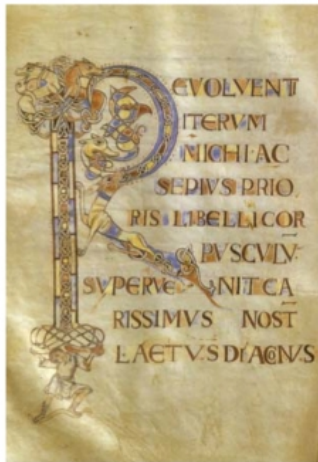 REVOLVENTI
ITERVM
NICHI AC
SEPIVS PRIO
RIS LIBELLI COR
PVSCVLV
SVPERVENIT CA
RISSIMVS NOST
LAETVS DIACONVS